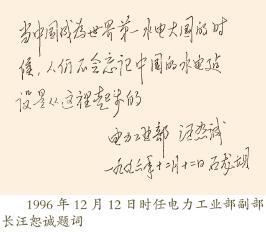 当中国成为世界第一水电大国的时
候，人们不会忘记中国的水电建
设是从这里起步的
电力工业部 汪恕诚
一九九六年十二月十二日 石龙坝
1996年12月12日时任电力工业部副部
长汪恕诚题词